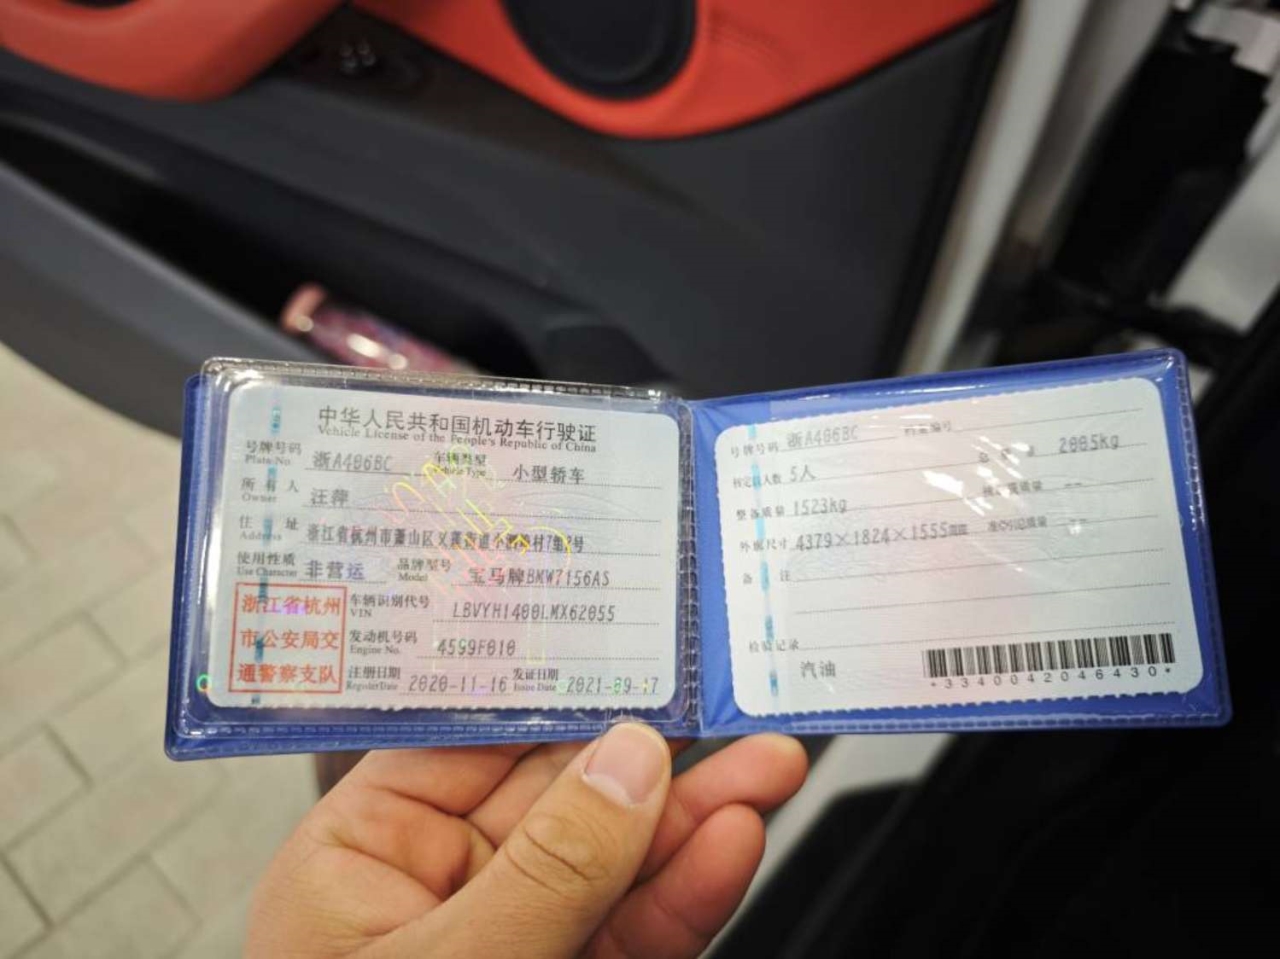 中华人民共和国机动车行驶证
Vehicle License of the People's Republic of China
号牌号码 浙A406BC 车辆类型 小型轿车
Plate No. Vehicle Type
所有人 汪萍
Owner
住址 浙江省杭州市萧山区义
Address
使用性质 非营运 品牌型号 宝马牌BMW7156AS
Use Character Model
浙江省杭州
市公安局交
通警察支队
车辆识别代号 LBVYH1400LMX62055
VIN
发动机号码 4599F010
Engine No.
注册日期 2020-11-16 发证日期 2021-09-17
Register Date Issue Date
号牌号码 浙A406BC 档案编号
核定载人数 5人 总质量 2005kg
整备质量 1523kg 核定载质量 --
外廓尺寸 4379×1824×1555mm 准牵引总质量 --
备注
检验记录
汽油
*3340042046430*